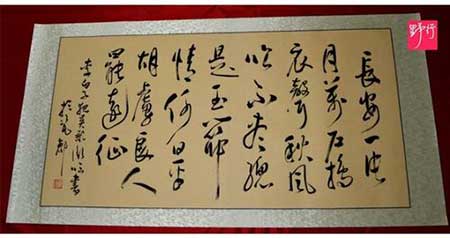 野行
長安一片
月萬户搗
衣聲秋風
吹不盡總
是玉關
情何日平
胡虜良人
罷遠征
李白子夜吳歌 書